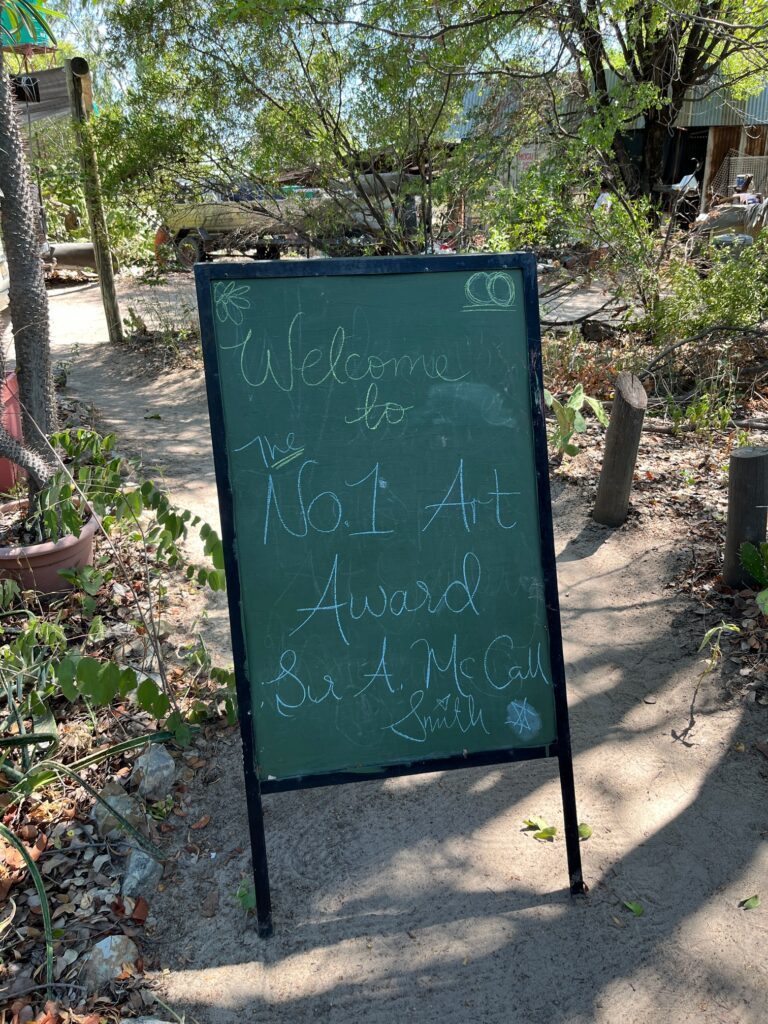 Welcome
to
The
No.1 Art
Award
Sir A. McCall
Smith